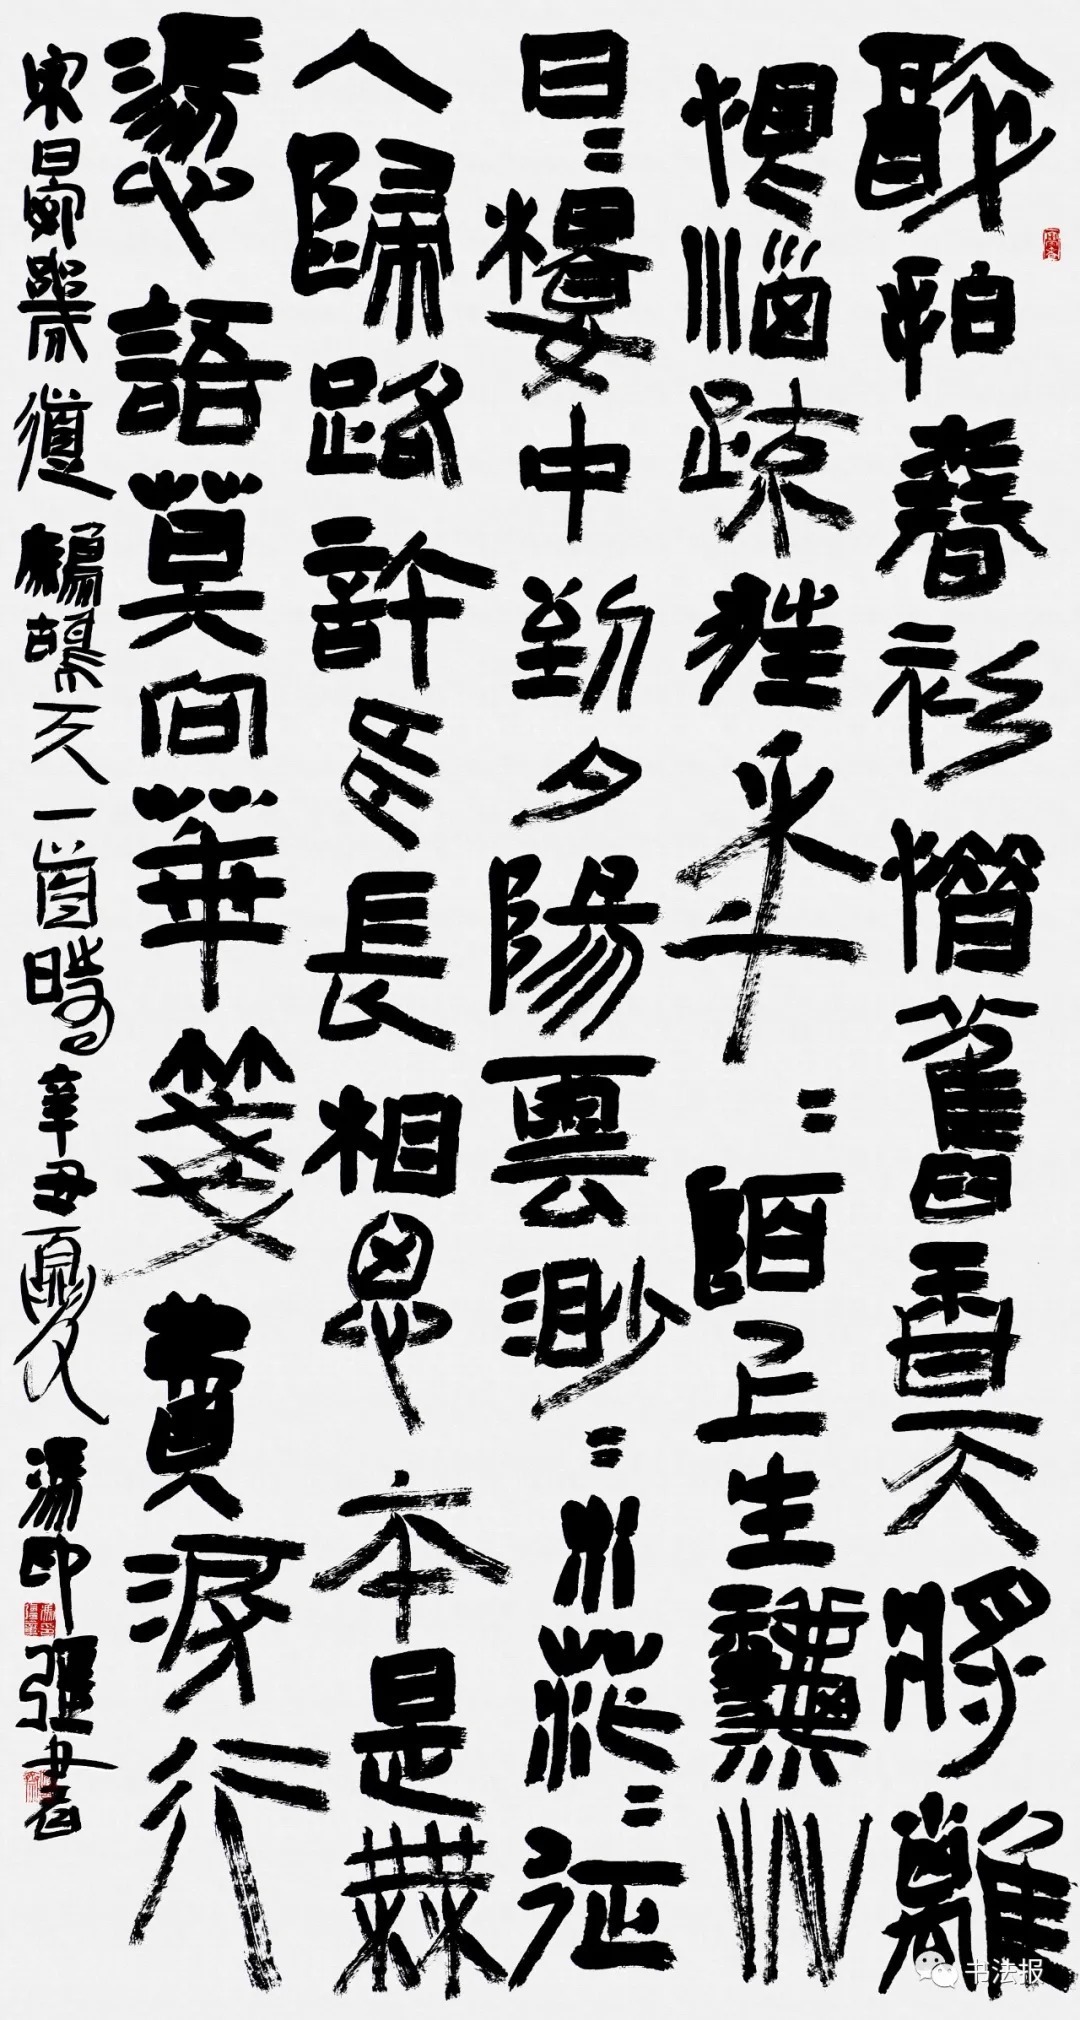 醉拍春衫惜舊香天將離
恨惱疏狂年〻陌上生秋艸
日〻樓中到夕陽雲渺〻水茫〻征
人歸路許多長相思本是無
憑語莫向華箋費淚行
宋晏幾道鷓鴣天一首時辛丑夏馮印強書
书法报